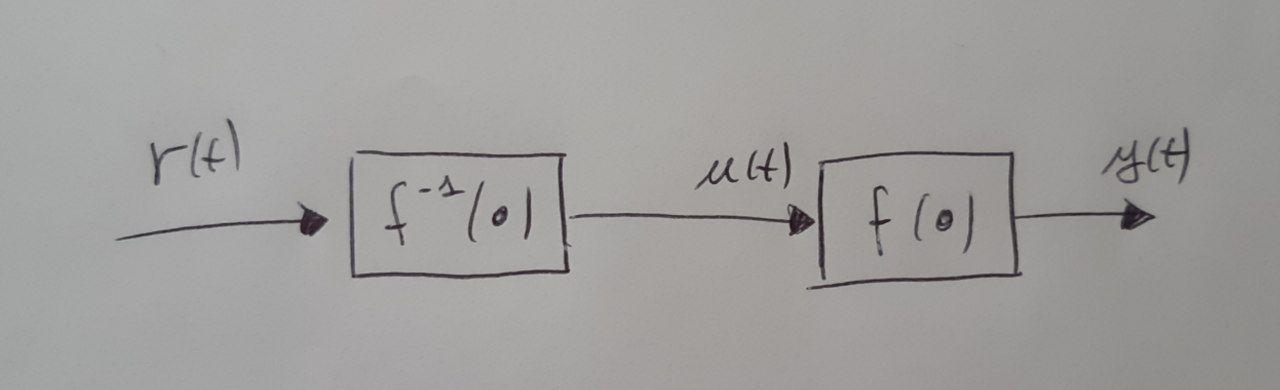 r(t)
f⁻¹(•)
u(t)
f(•)
y(t)